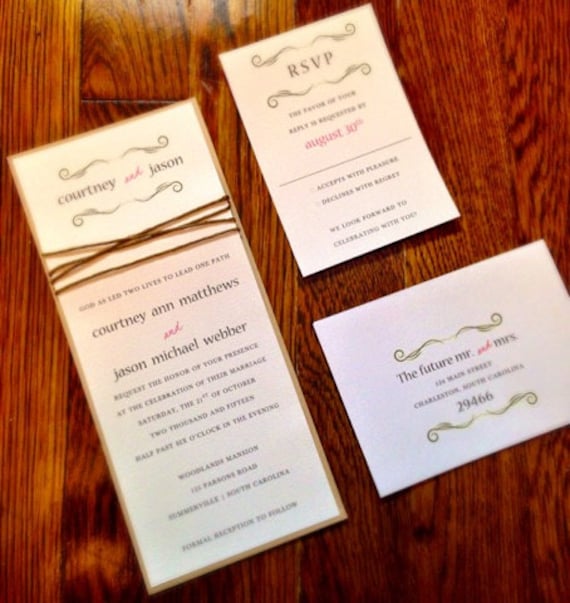 courtney and jason
GOD AS LED TWO LIVES TO LEAD ONE PATH
courtney ann matthews
and
jason michael webber
REQUEST THE HONOR OF YOUR PRESENCE
AT THE CELEBRATION OF THEIR MARRIAGE
SATURDAY, THE 21ST OF OCTOBER
TWO THOUSAND AND FIFTEEN
HALF PAST SIX O'CLOCK IN THE EVENING
WOODLANDS MANSION
125 PARSONS ROAD
SUMMERVILLE | SOUTH CAROLINA
FORMAL RECEPTION TO FOLLOW
RSVP
THE FAVOR OF YOUR
REPLY IS REQUESTED BY
august 30th
ACCEPTS WITH PLEASURE
DECLINES WITH REGRET
WE LOOK FORWARD TO
CELEBRATING WITH YOU!
The future mr. and mrs.
124 MAIN STREET
CHARLESTON, SOUTH CAROLINA
29466